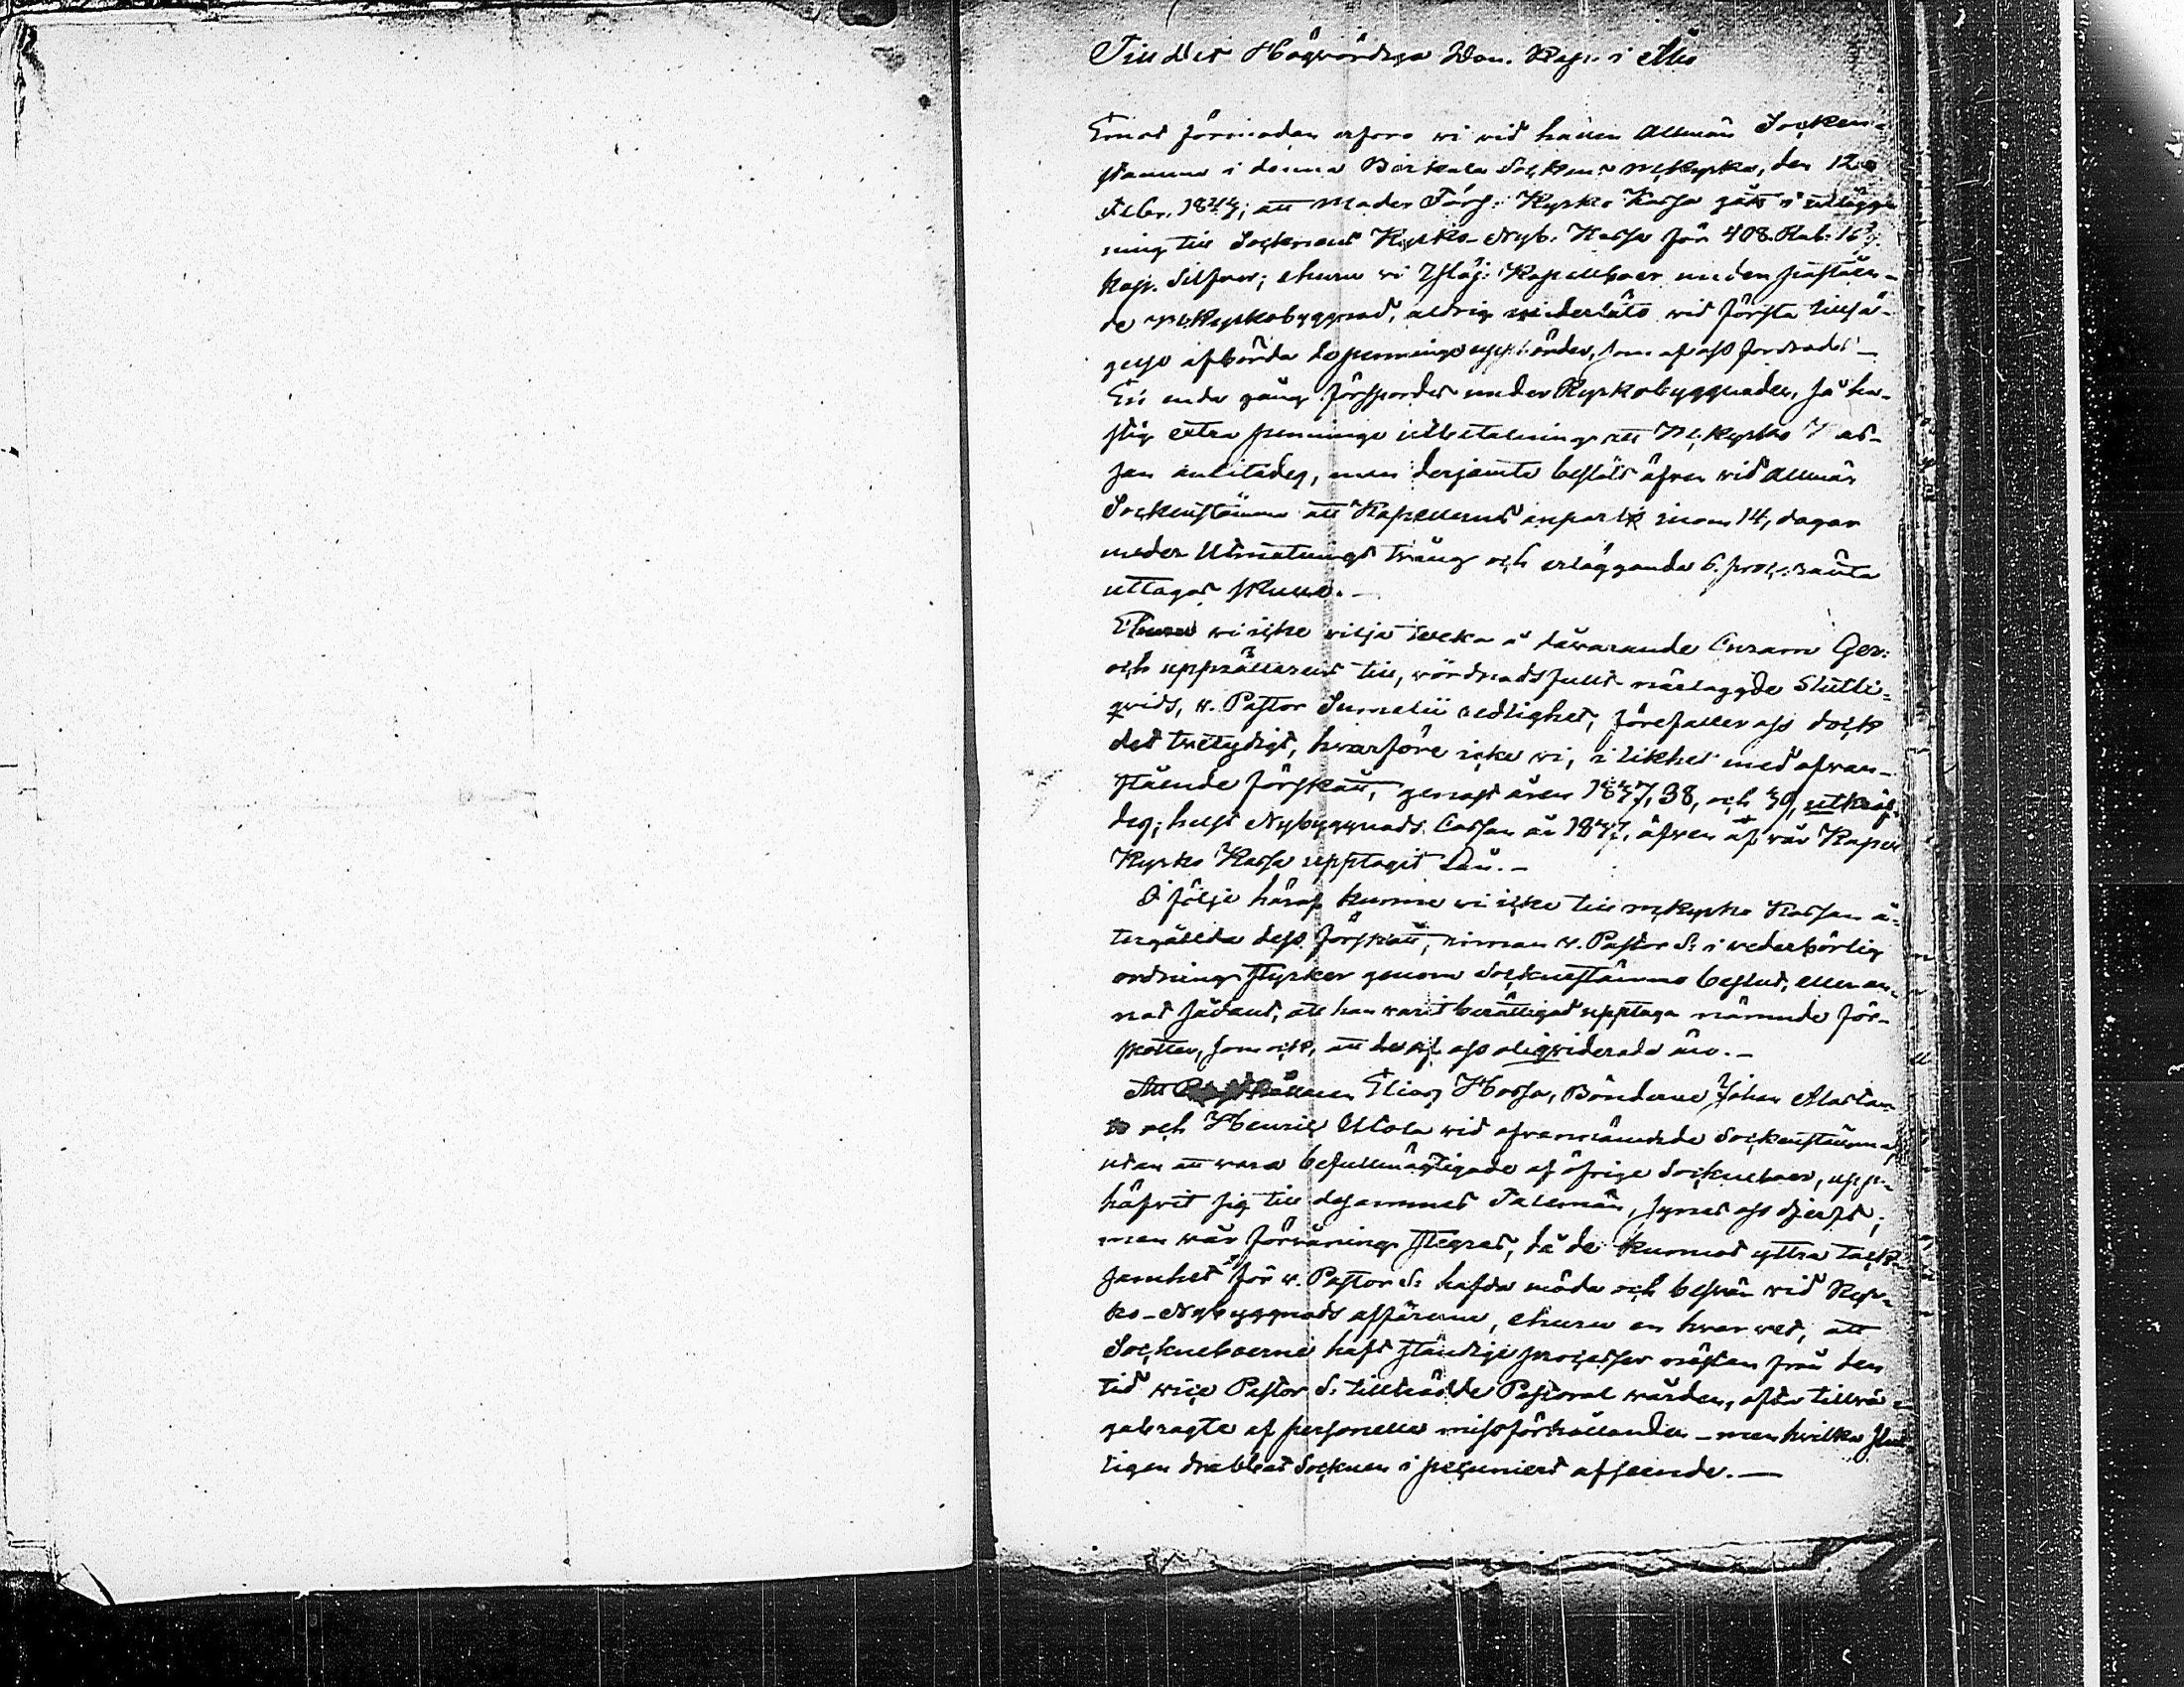 Till det Högvördiga Dom. Kap. i Åbo
Emot förmodan erforo wi wid hållen Allmän Socken-
stämma i denna Birkala Sockens Mkyrka, den 12
Febr. 1843; att Moder Förs: Kyrko Kassa gått i utlägg-
ning till Sockenens Kyrko-Nyb. Kassa för 408 Rub. 16
kop. Silfver; ehuru wi Ylöj: Kapellboer under påståen-
de Mkyrkobyggnad, aldrig underlåto wid första tillsä-
gelse afbörda de penninge uppbörder, som af oss fordrades –
En enda gång förspordes under Kyrkobyggnaden, så ha-
stig extra penninge utbetalning att M.kyrko Kas-
san anlitades, men derjemte beslöts äfven wid Allmän
Sockenstämma att Kapellernes anpart inom 14, dagar
meder Utmätnings twång och erläggande 6. proc. ränta
uttagas skulle. –
Ehuru wi icke vilja tweka å dåwarande Curam Ger:
och upprättarens till, wördnadsfullt närlaggde Slutli-
qvids, v. Pastor Sumelii redlighet, förefaller oss dock
det twetydigt, hwarföre icke wi, i likhet med ofwan-
stående förskått, genast åren 1837, 38, och 39, utkräf-
des; helst Nybyggnads Cassan år 1837, äfven af wår Kapell
Kyrko Kassa upptagit Lån. –
I följe häraf kunne wi icke till mkyrko Kassan å-
tergällda dess förskått, innan v. Pastor S: i wederbörlig
ordning styrker genom Socknestämmo beslut, eller an-
nat sådant, att han warit berättigad upptaga nämnde för-
skotter, som ock, att de af oss oliqviderade äro. –
Att Elias Hossa, Bönderne Johan Mattan
och Henric Uttola wid ofvannämdde Sockenstämma,
utan att wara befullmägtigade af öfrige Sockneboer, upp-
häfvit sig till desammas Talemän, synes oss djerft;
men wår förwåning stegras, då de kunnat yttra tack-
samhet för v. Pastor S: hafda möda och beswär wid Kyr-
ko-Nybyggnads affärerne, ehuru en hwar wet, att
Sockneboerne haft ständige processer nästan från den
tid wice Pastor S. tillträdde Pastoral wården, ofta tillwä-
gabragte af personella missförhållanden – men hwilka slut-
ligen drabbat Socknen i pecuniert afseende. –